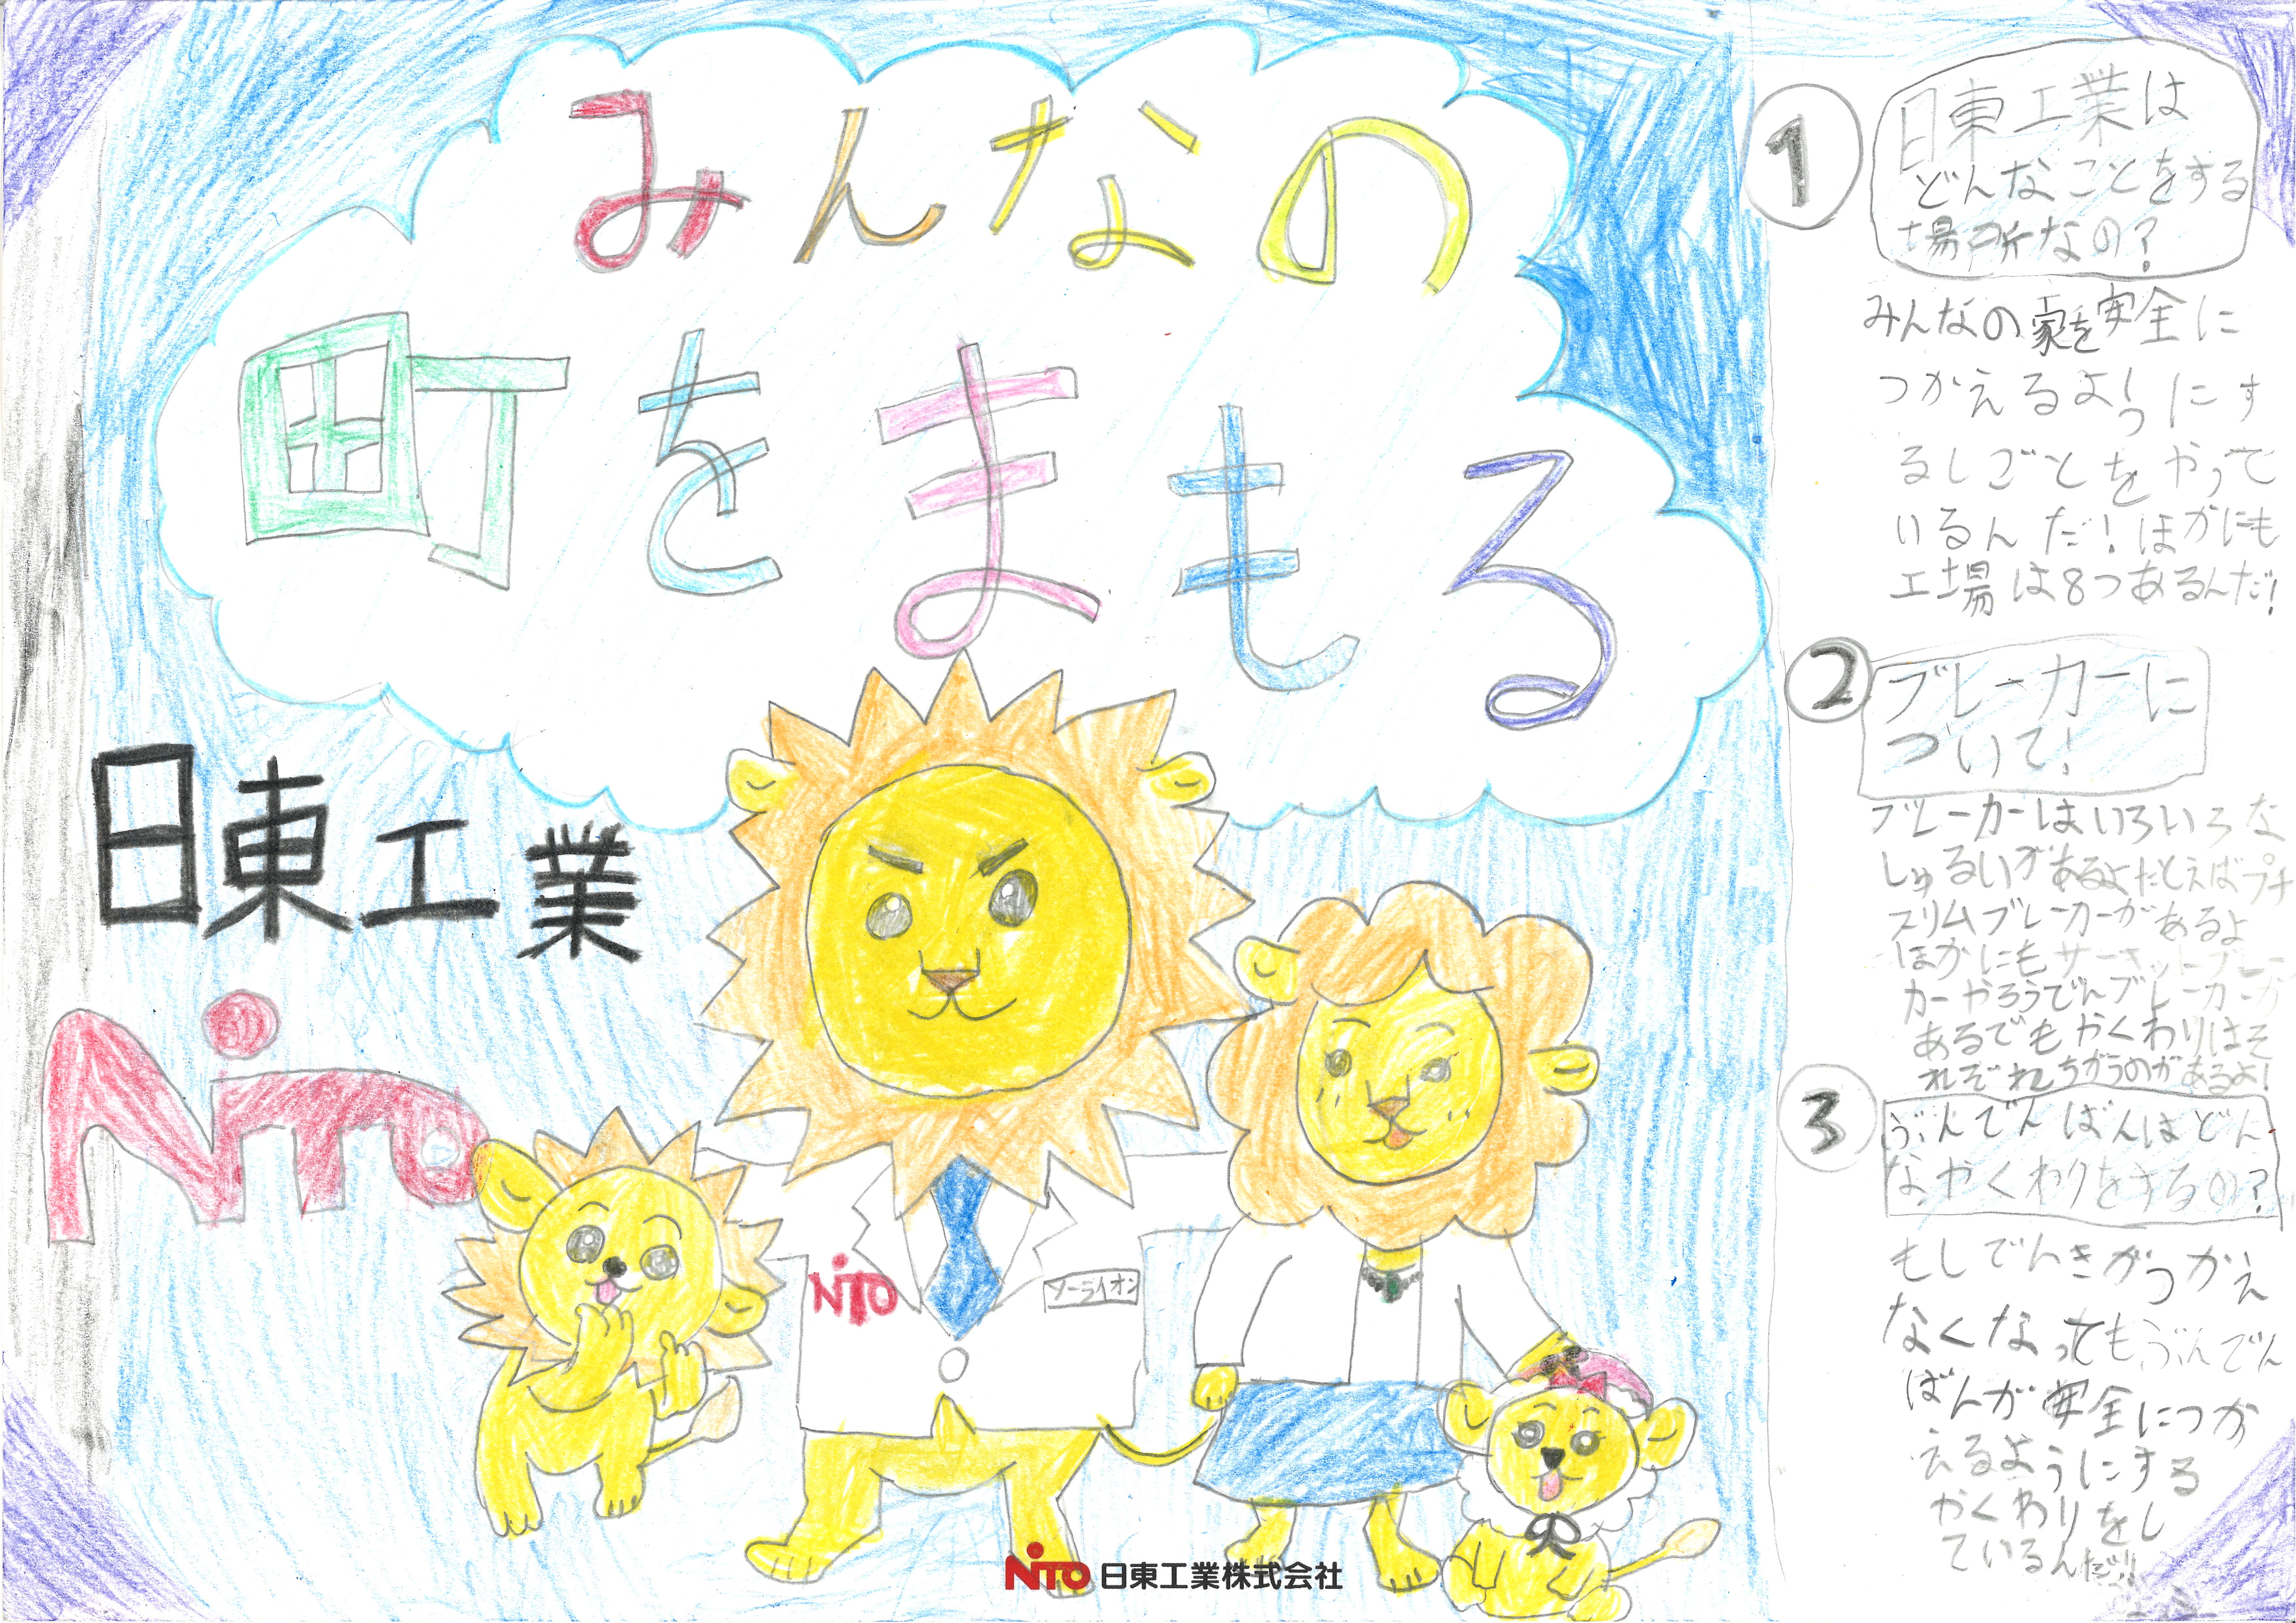 みんなの
町をまもる
日東工業
NiTO
NiTO
ソーライオン
NiTO 日東工業株式会社
1
日東工業は
どんなことをする
場所なの?
みんなの家を安全に
つかえるようにす
るしごとをやって
いるんだ!ほかにも
工場は8つあるんだ!
2
ブレーカーに
ついて!
ブレーカーはいろいろな
しゅるいがあるよたとえばプチ
スリムブレーカーがあるよ
ほかにもサーキットブレー
カーやろうでんブレーカーが
あるでもやくわりはそ
れぞれちがうのがあるよ!
3
ぶんでんばんはどん
なやくわりをするの?
もしでんきがつかえ
なくなってもぶんでん
ばんが安全につか
えるようにする
やくわりをし
ているんだ!!